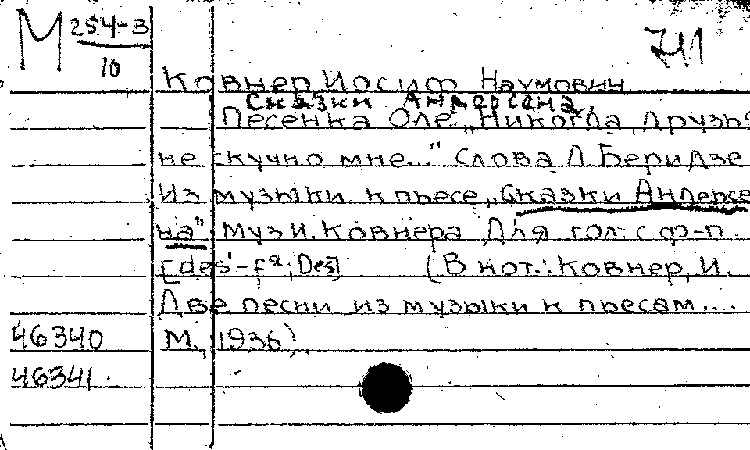 М 254-3
10
741
Ковнер, Иосиф Наумович
Сказки Андерсена,
Песенка Оле „Никогда, друзья
не скучно мне..." Слова Л. Беридзе
Из музыки к пьесе „Сказки Андерсе
на" Муз. И. Ковнера Для гол. с ф-п.
[des'-f²; Des] (В нот.: Ковнер, И.
Две песни из музыки к пьесам....
46340 М., 1936)
46341.